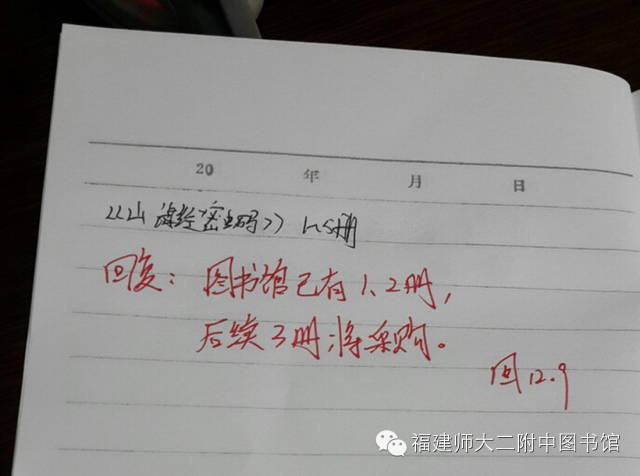 20 年 月 日
《山海经密码》 1~5册
回复：图书馆已有1、2册，
后续3册将采购。
图12.9
福建师大二附中图书馆